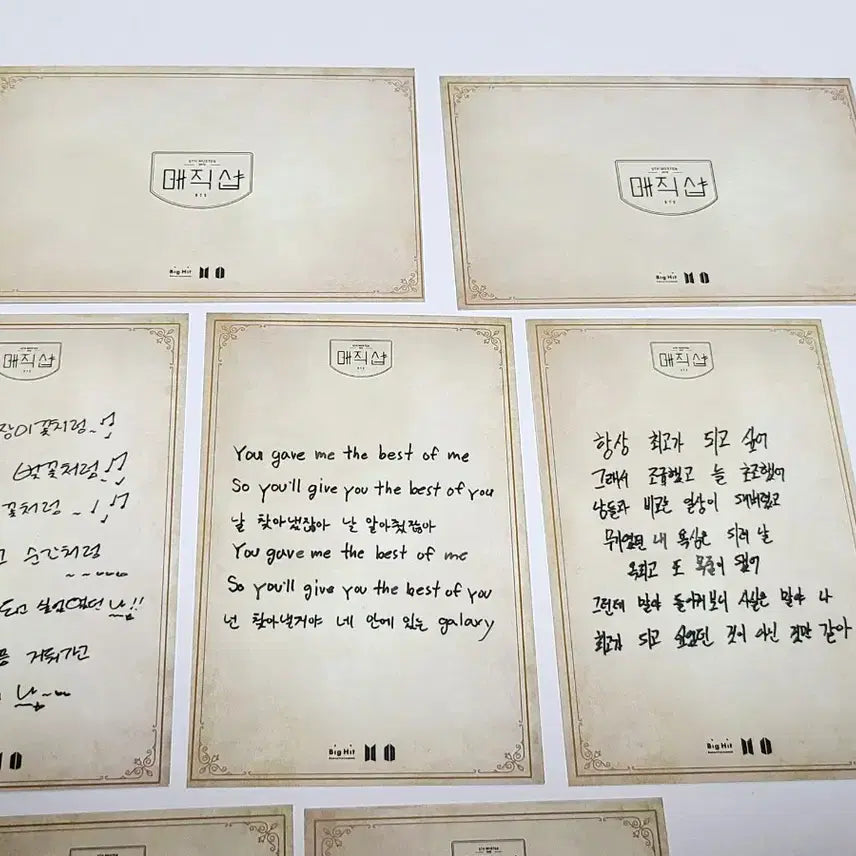 5TH MUSTER
매직샵
BTS
Big Hit
5TH MUSTER
매직샵
BTS
Big Hit
매직샵
BTS
꽃처럼~
벚꽃처럼
꽃처럼~
순간처럼
거둬가고
5TH MUSTER
매직샵
BTS
You gave me the best of me
So you'll give you the best of you
날 찾아냈잖아 날 알아줬잖아
You gave me the best of me
So you'll give you the best of you
넌 찾아낼거야 네 안에 있는 galaxy
Big Hit
5TH MUSTER
매직샵
BTS
항상 최고가 되고 싶어
그래서 조급했고 늘 초조했어
남들과 비교는 일상이 돼버렸고
무기였던 내 욕심은 되려 날
옥죄고 또 목줄이 됐어
그런데 말야 돌이켜보니 사실은 말야 나
최고가 되고 싶었던 것이 아닌 것만 같아
Big Hit